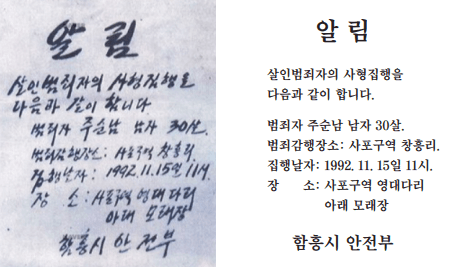 알 림
살인범죄자의 사형집행을
다음과 같이 합니다
범죄자 주순남 남자 30살.
범죄감행장소: 사포구역 창흥리.
집행날자: 1992. 11. 15일 11시.
장 소: 사포구역 영대다리
아래 모래장
함흥시 안전부
알 림
살인범죄자의 사형집행을
다음과 같이 합니다.
범죄자 주순남 남자 30살.
범죄감행장소: 사포구역 창흥리.
집행날자: 1992. 11. 15일 11시.
장 소: 사포구역 영대다리
아래 모래장
함흥시 안전부